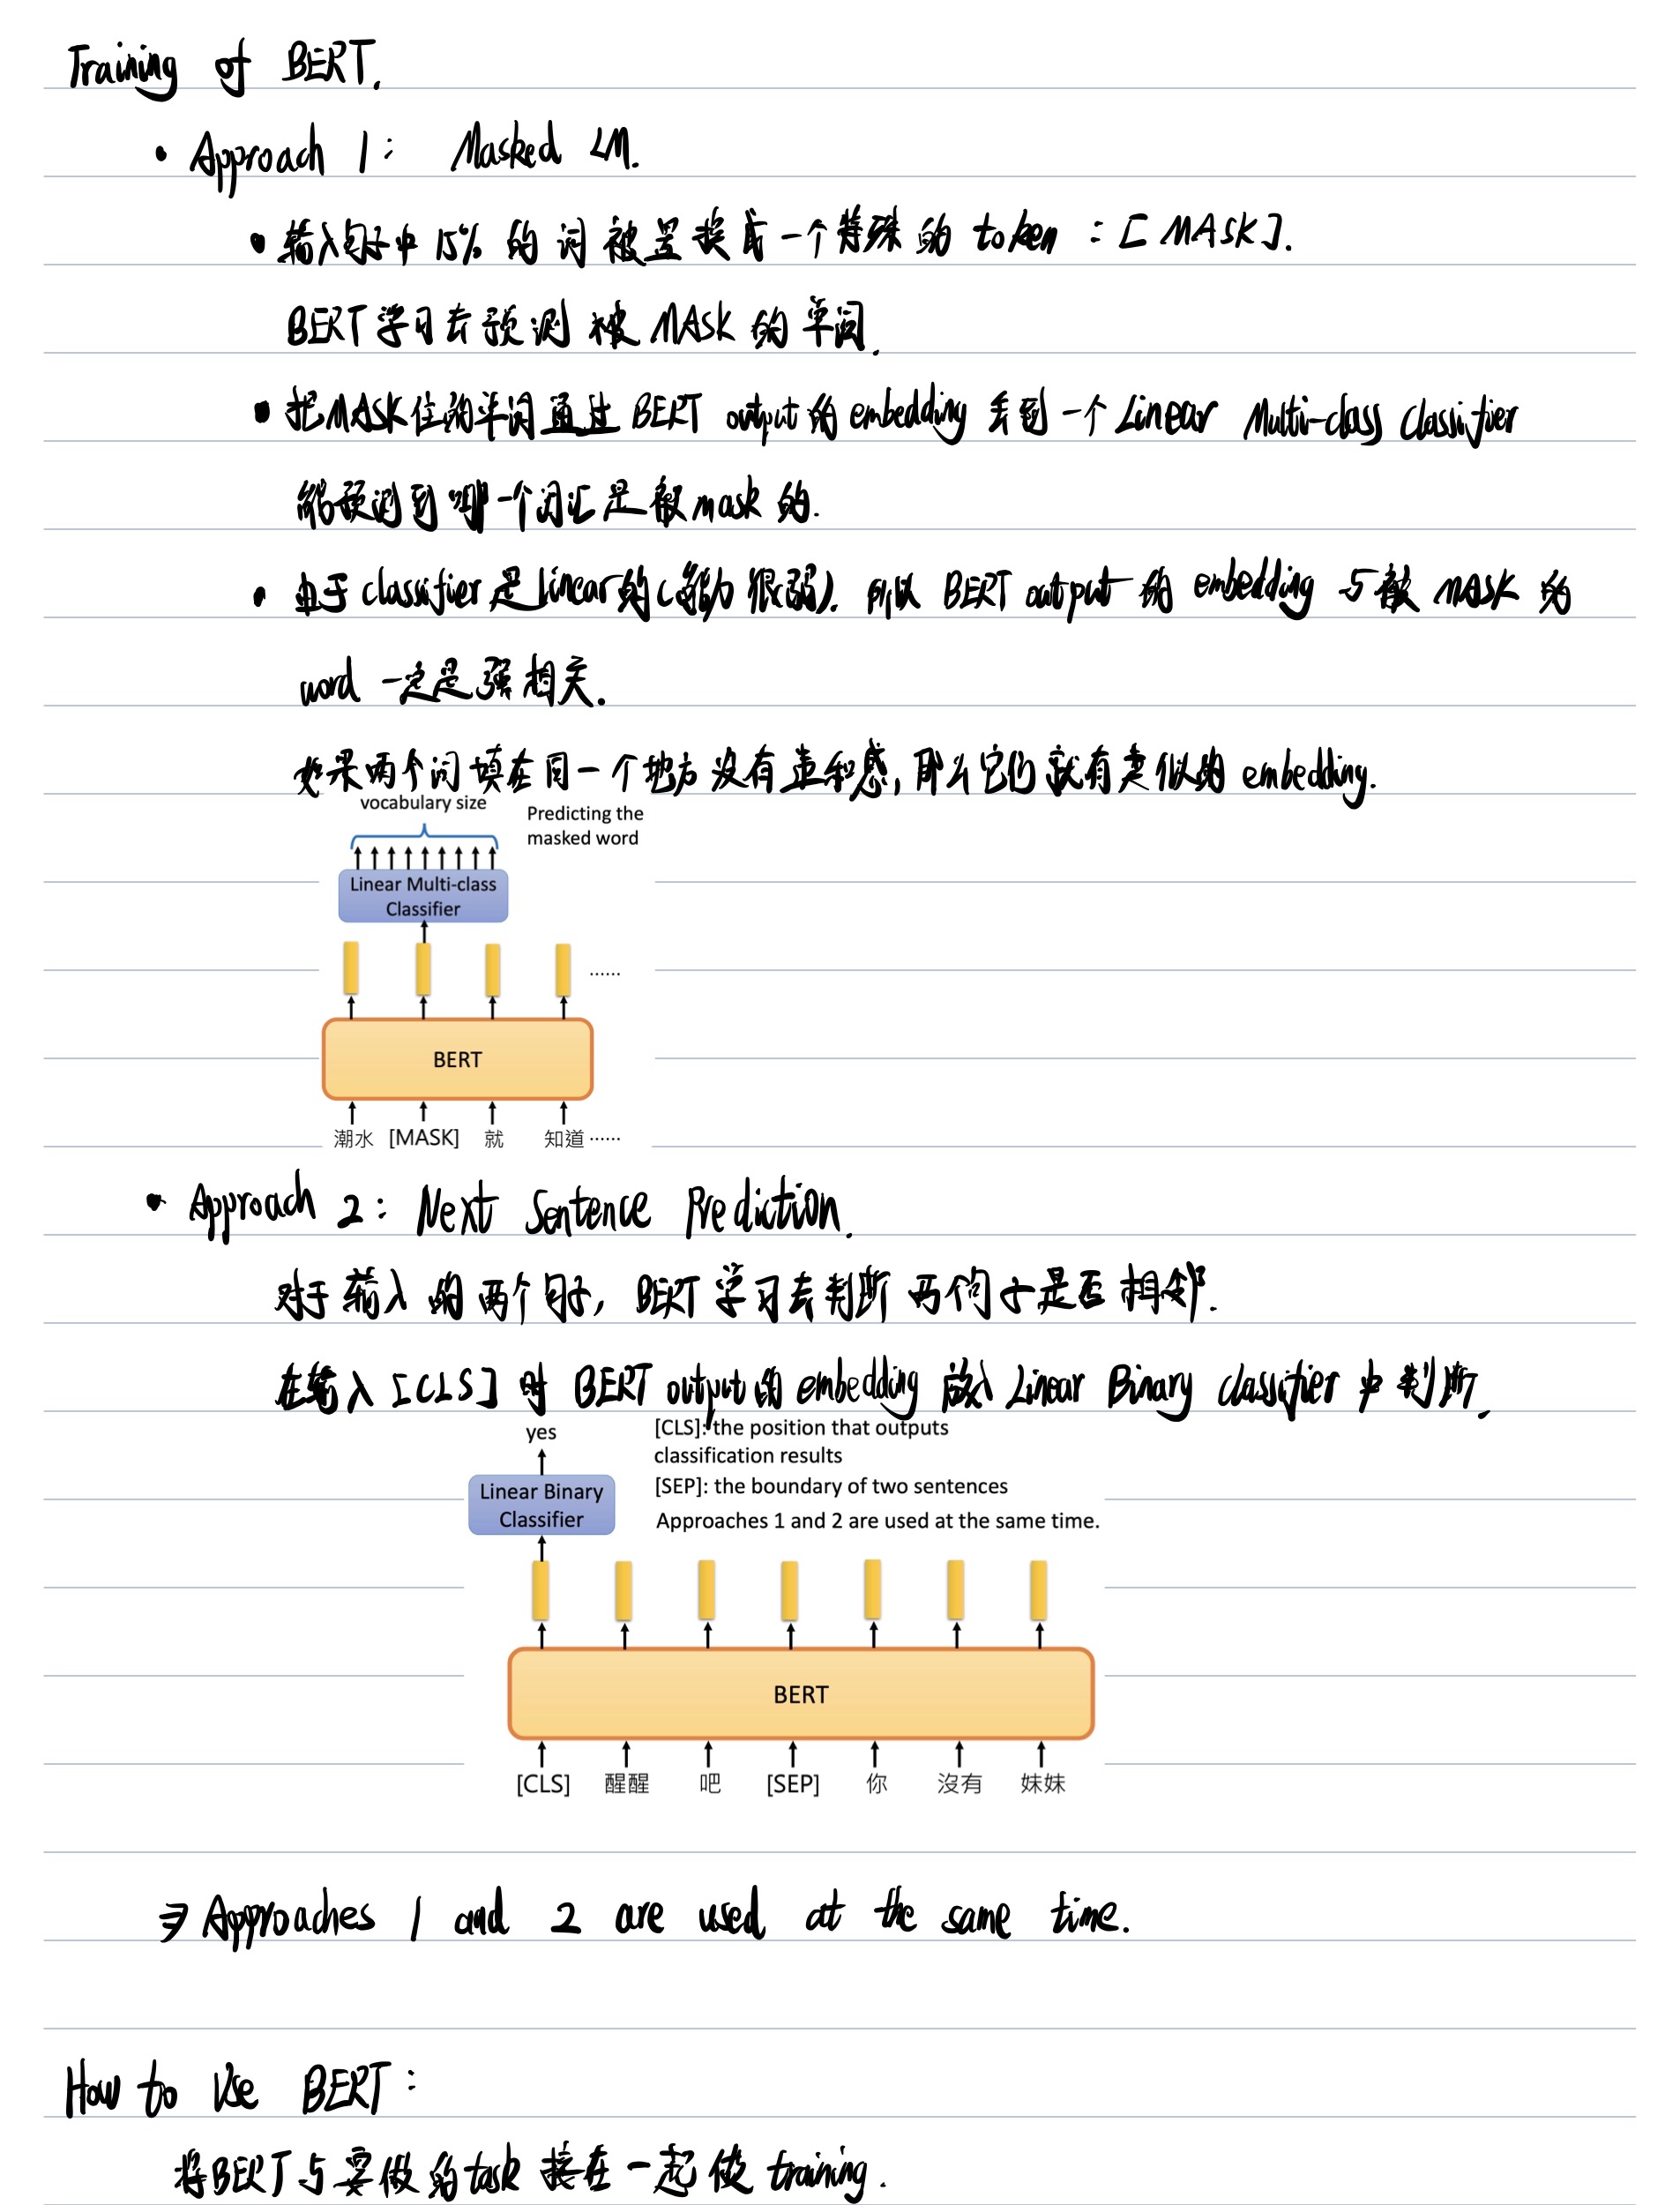 Training of BERT.
• Approach 1: Masked LM.
• 输入句子中15%的词被置换成一个特殊的token:[MASK].
BERT学习去预测被MASK的单词.
• 把MASK住的单词通过BERT output的embedding丢到一个Linear Multi-class classifier
能预测到哪一个词汇是被mask的.
• 由于classifier是linear的(能力很弱).所以BERT output的embedding与被MASK的
word一定是强相关.
如果两个词填在同一个地方没有违和感,那么它们就有类似的embedding.
vocabulary size
Predicting the
masked word
Linear Multi-class
Classifier
......
BERT
潮水 [MASK] 就 知道 ......
• Approach 2: Next Sentence Prediction.
对于输入的两个句子, BERT学习去判断两个句子是否相邻.
在输入[CLS]时BERT output的embedding放入Linear Binary classifier中判断.
yes
[CLS]: the position that outputs
classification results
[SEP]: the boundary of two sentences
Linear Binary
Classifier
Approaches 1 and 2 are used at the same time.
BERT
[CLS] 醒醒 吧 [SEP] 你 沒有 妹妹
⇒ Approaches 1 and 2 are used at the same time.
How to Use BERT:
将BERT与要做的task接在一起做training.